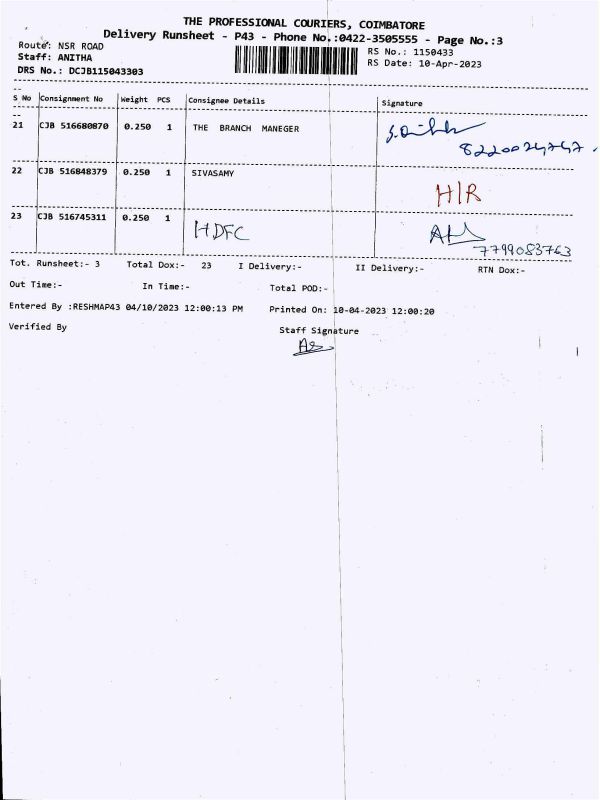 THE PROFESSIONAL COURIERS, COIMBATORE
Delivery Runsheet - P43 - Phone No.:0422-3505555 - Page No.:3
Route: NSR ROAD
RS No.: 1150433
Staff: ANITHA
RS Date: 10-Apr-2023
DRS No.: DCJB115043303
S No Consignment No Weight PCS Consignee Details Signature
21 CJB 516680870 0.250 1 THE BRANCH MANEGER
22 CJB 516848379 0.250 1 SIVASAMY H/R
23 CJB 516745311 0.250 1 HDFC
7799083763
Tot. Runsheet:- 3 Total Dox:- 23 I Delivery:- II Delivery:- RTN Dox:-
Out Time:- In Time:- Total POD:-
Entered By :RESHMAP43 04/10/2023 12:00:13 PM Printed On: 10-04-2023 12:00:20
Verified By Staff Signature